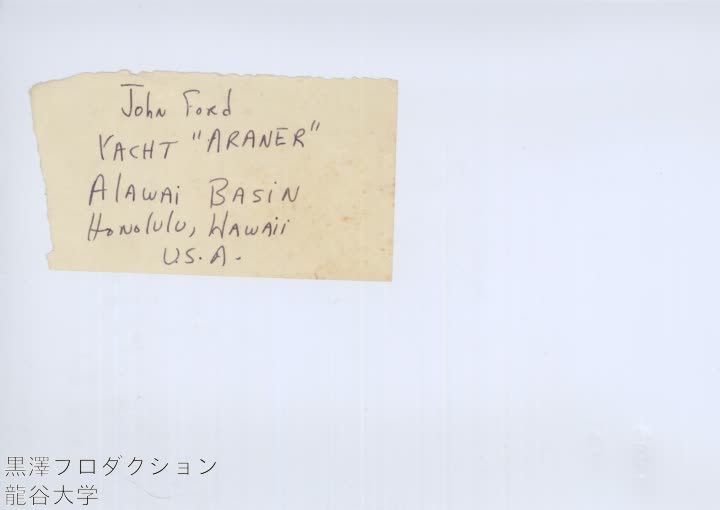 John Ford
YACHT "ARANER"
AlAWAi BASiN
HONolulu, HAWAii
U.S.A.
黒澤フロダクション
龍谷大学